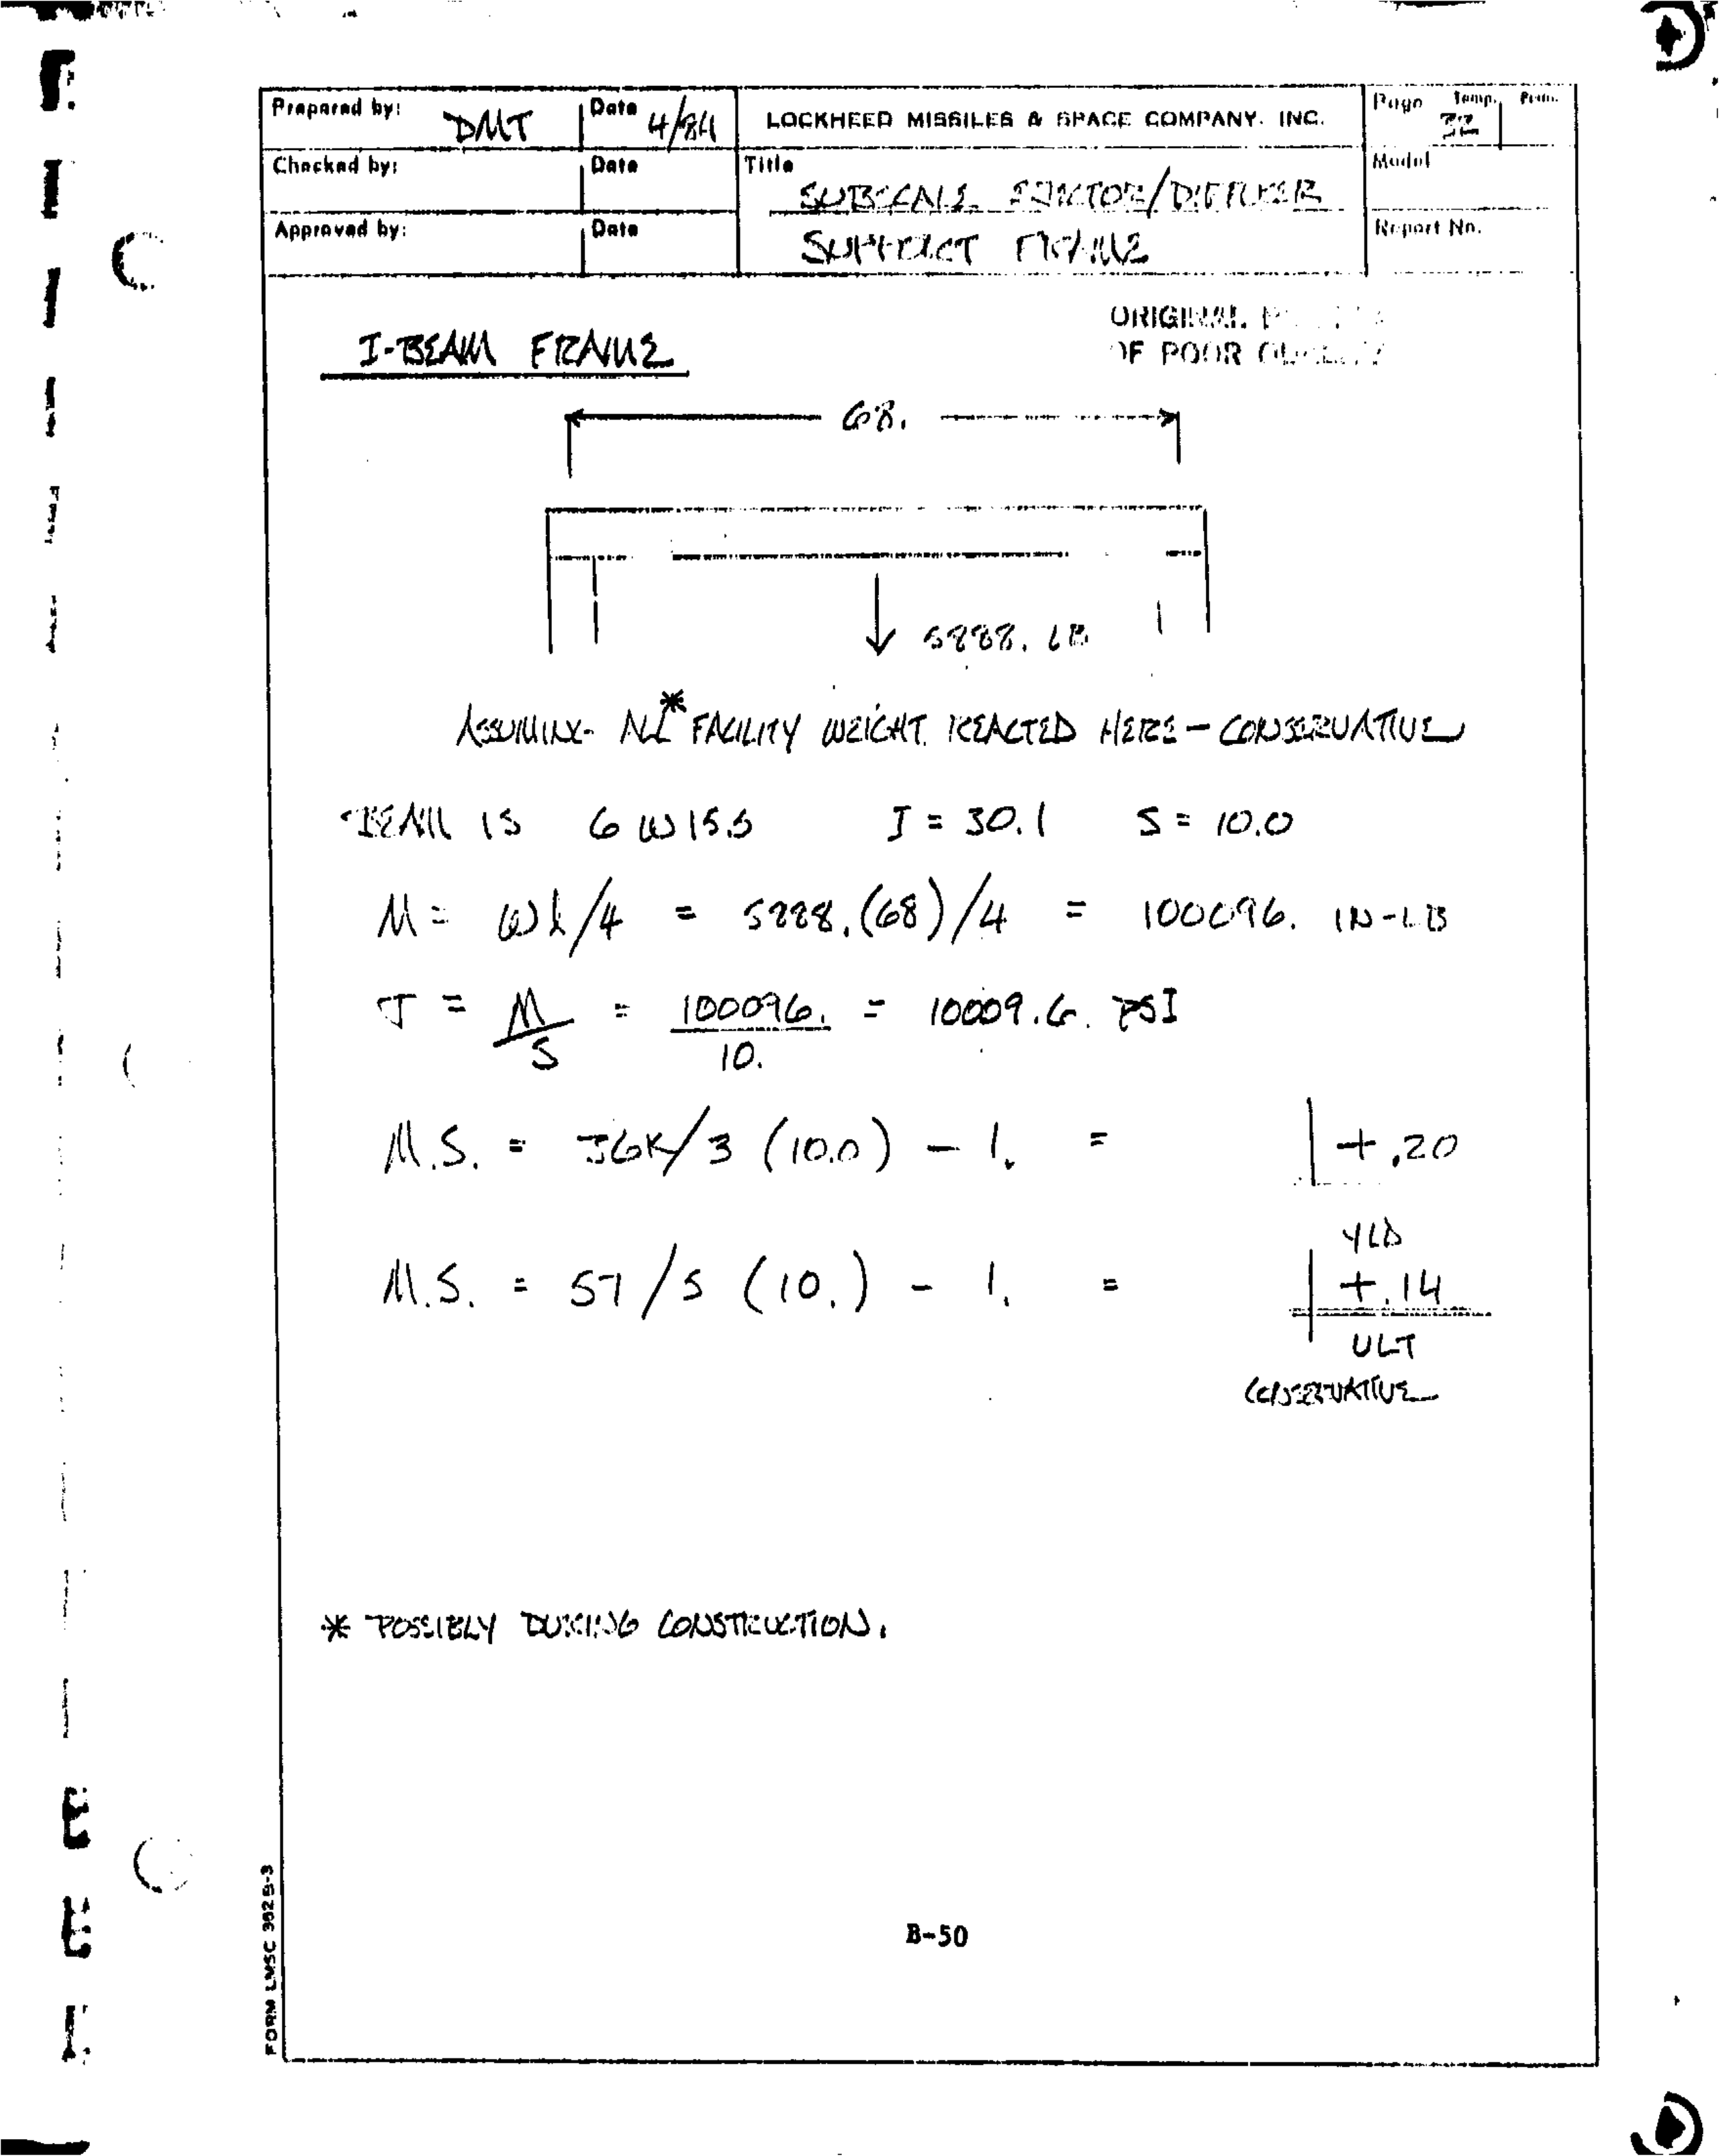 Prepared by: DMT Date 4/84 LOCKHEED MISSILES & SPACE COMPANY. INC. Page Temp. Perm.
Checked by: Date Title Model
SUBSCALE EJECTOR/DIFFUSER
Approved by: Date SUPPORT FRAME Report No.
ORIGINAL
OF POOR
I-BEAM FRAME
68.
5888. LB
ASSUMING ALL* FACILITY WEIGHT REACTED HERE - CONSERVATIVE
BEAM IS 6 W 15.5 I = 30.1 S = 10.0
M = Wl/4 = 5888.(68)/4 = 100096. IN-LB
σ = M/S = 100096./10. = 10009.6. PSI
M.S. = 36K/3 (10.0) - 1. = +.20
YLD
M.S. = 57/5 (10.) - 1. = +.14
ULT
CONSERVATIVE
* POSSIBLY DURING CONSTRUCTION.
B-50
FORM LMSC 382B-3